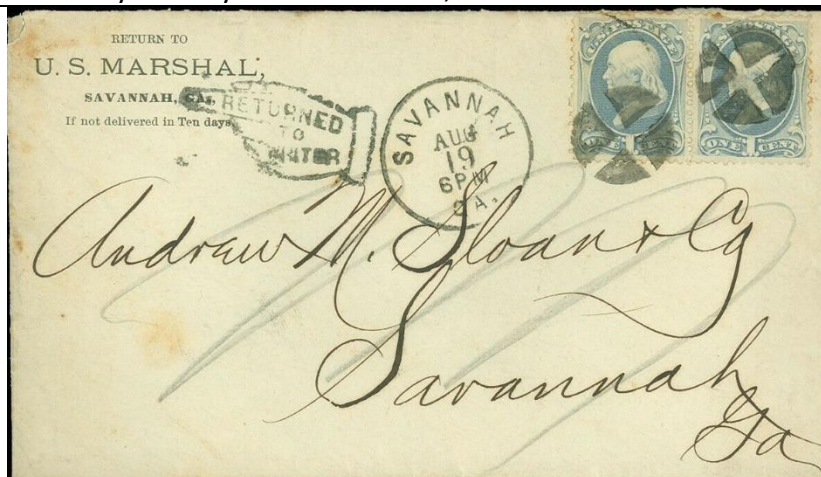 RETURN TO
U. S. MARSHAL,
SAVANNAH, GA.,
If not delivered in Ten days
RETURNED
TO
WRITER
SAVANNAH
AUG
19
6PM
GA.
ONE 1 CENT
ONE 1 CENT
Andrew M. Sloan & Co
Savannah
Ga